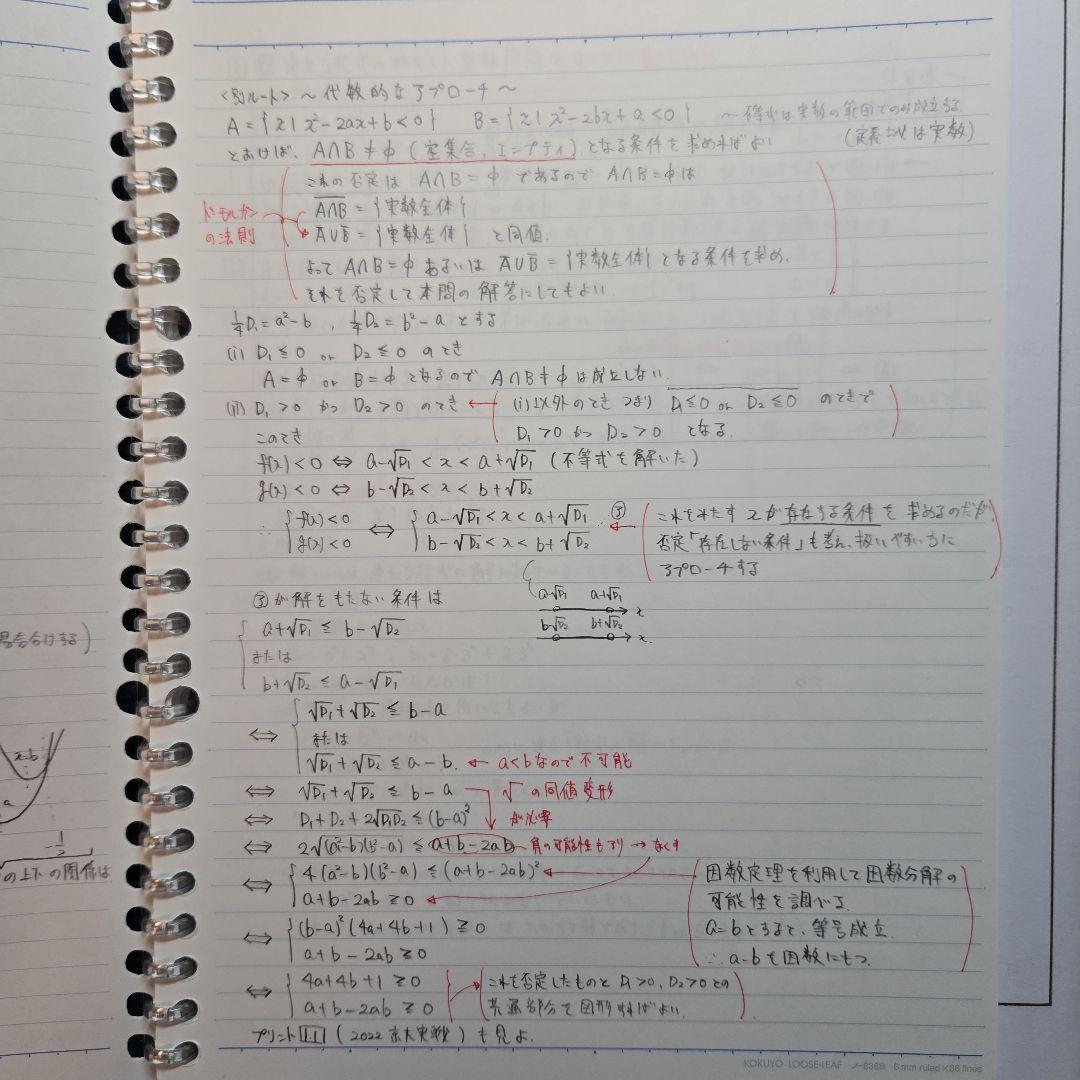 <別ルート> ～代数的なアプローチ～
A = {x| x²-2ax+b<0}  B = {x| x²-2bx+a<0} ～不等式は実数の範囲でのみ成立する
とおけば、A∩B≠φ (空集合、エンプティ) となる条件を求めればよい (定義よりxは実数)
これの否定は A∩B=φ であるので A∩B=φは
ド・モルガンの法則
A∩B = {実数全体}
A∪B = {実数全体} と同値.
よって A∩B=φ あるいは A∪B = {実数全体} となる条件を求め、
それを否定して本問の解答にしてもよい.
1/4D₁=a²-b , 1/4D₂=b²-a とする
(i) D₁≤0 or D₂≤0 のとき
A=φ or B=φ となるので A∩B≠φ は成立しない.
(ii) D₁>0 かつ D₂>0 のとき ← (i)以外のとき つまり D₁≤0 or D₂≤0 のときで
このとき D₁>0 かつ D₂>0 となる.
f(x)<0 ⇔ a-√D₁<x<a+√D₁ (不等式を解いた)
g(x)<0 ⇔ b-√D₂<x<b+√D₂
∴ { f(x)<0 ⇔ { a-√D₁<x<a+√D₁ …③
g(x)<0 b-√D₂<x<b+√D₂
これをみたす xが存在する条件を求めるのだが、
否定「存在しない条件」も考え、扱いやすい方に
アプローチする
a-√D₁ a+√D₁ x
b-√D₂ b+√D₂ x
③が解をもたない条件は
a+√D₁ ≤ b-√D₂
または
b+√D₂ ≤ a-√D₁
√D₁+√D₂ ≤ b-a
⇔ または
√D₁+√D₂ ≤ a-b. ← a<bなので不可能
⇔ √D₁+√D₂ ≤ b-a → √の同値変形
⇔ D₁+D₂+2√D₁D₂ ≤ (b-a)² が必要
⇔ 2√(a²-b)(b²-a) ≤ a+b-2ab 負の可能性もあり → なくす
⇔ { 4(a²-b)(b²-a) ≤ (a+b-2ab)²
a+b-2ab ≧ 0
因数定理を利用して因数分解の
可能性を調べる.
a=bとすると、等号成立.
∴ a-bを因数にもつ
⇔ { (b-a)²(4a+4b+1) ≧ 0
a+b-2ab ≧ 0
⇔ { 4a+4b+1 ≧ 0
a+b-2ab ≧ 0
これを否定したものと D₁>0, D₂>0との
共通部分を図形すればよい.
プリント11 (2022京大実戦) も見よ.
場合分けする)
x=b
a
-1/2
の上下の関係は
KOKUYO LOOSE-LEAF ノ-836B 6mm ruled×36 lines